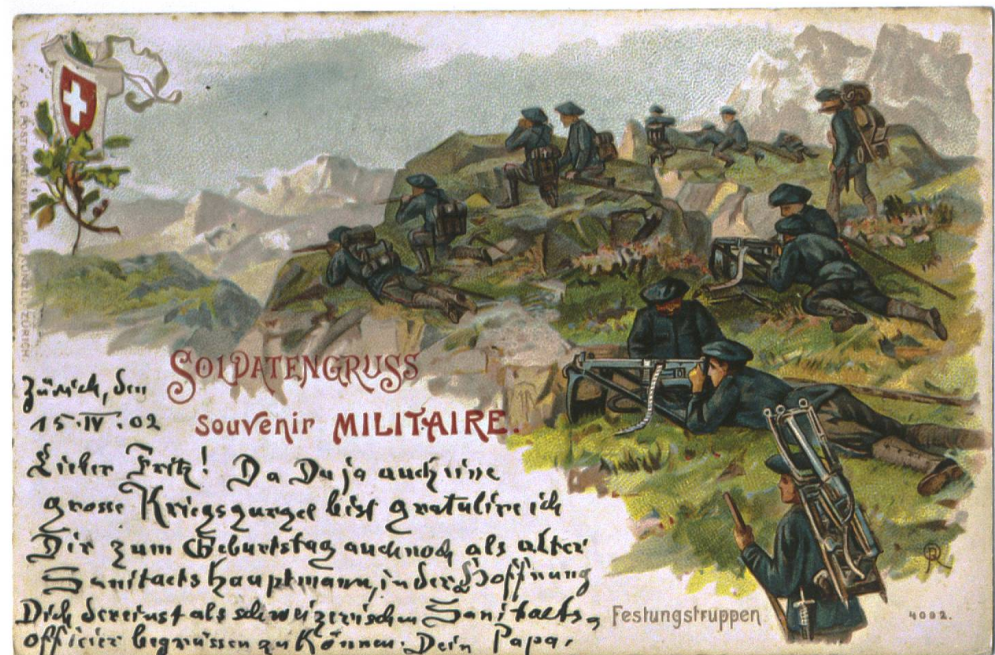 SOLDATENGRUSS
souvenir MILITAIRE.
Zürich, den
15.IV.02
Lieber Fritz! Da Du ja auch eine
grosse Kriegsgurgel bist gratulire ich
Dir zum Geburtstag auch noch als alter
Sanitaetshauptmann, in der Hoffnung
Dich dereinst als schweizerischen Sanitaets,
officier begrüssen zu Können. Dein Papa.
Festungstruppen
4002.
ZÜRICH